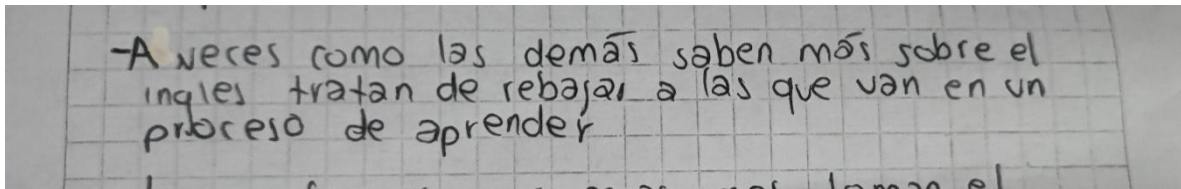 -A veces como las demás saben más sobre el
ingles tratan de rebajar a las que van en un
proceso de aprender